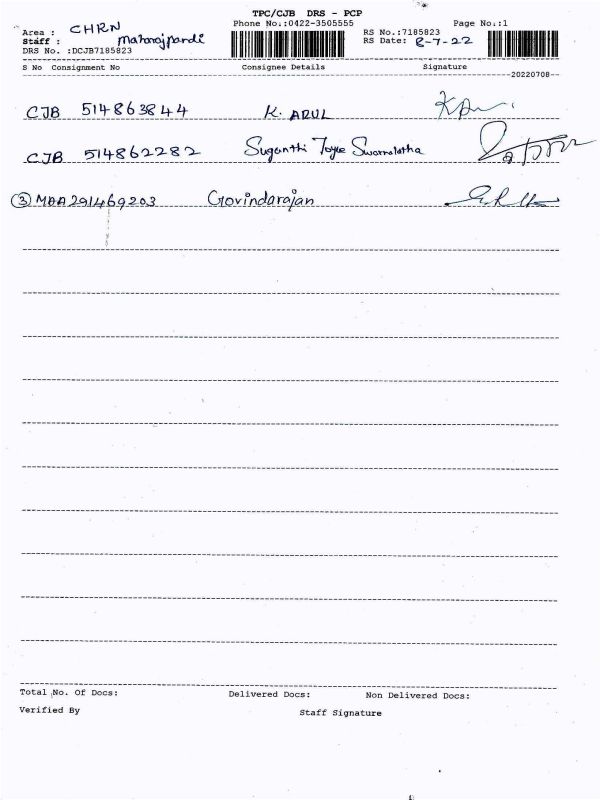 TPC/CJB DRS - PCP
Area : CHRN Phone No.:0422-3505555 Page No.:1
Staff : RS No.:7185823
DRS No. :DCJB7185823 RS Date: 8-7-22
S No Consignment No Consignee Details Signature
20220708
CJB 514863844 K. ARUL
CJB 514862282 Suganthi Joyce Swarnalatha
3 MAA291469203 Govindarajan
Total No. Of Docs: Delivered Docs: Non Delivered Docs:
Verified By Staff Signature